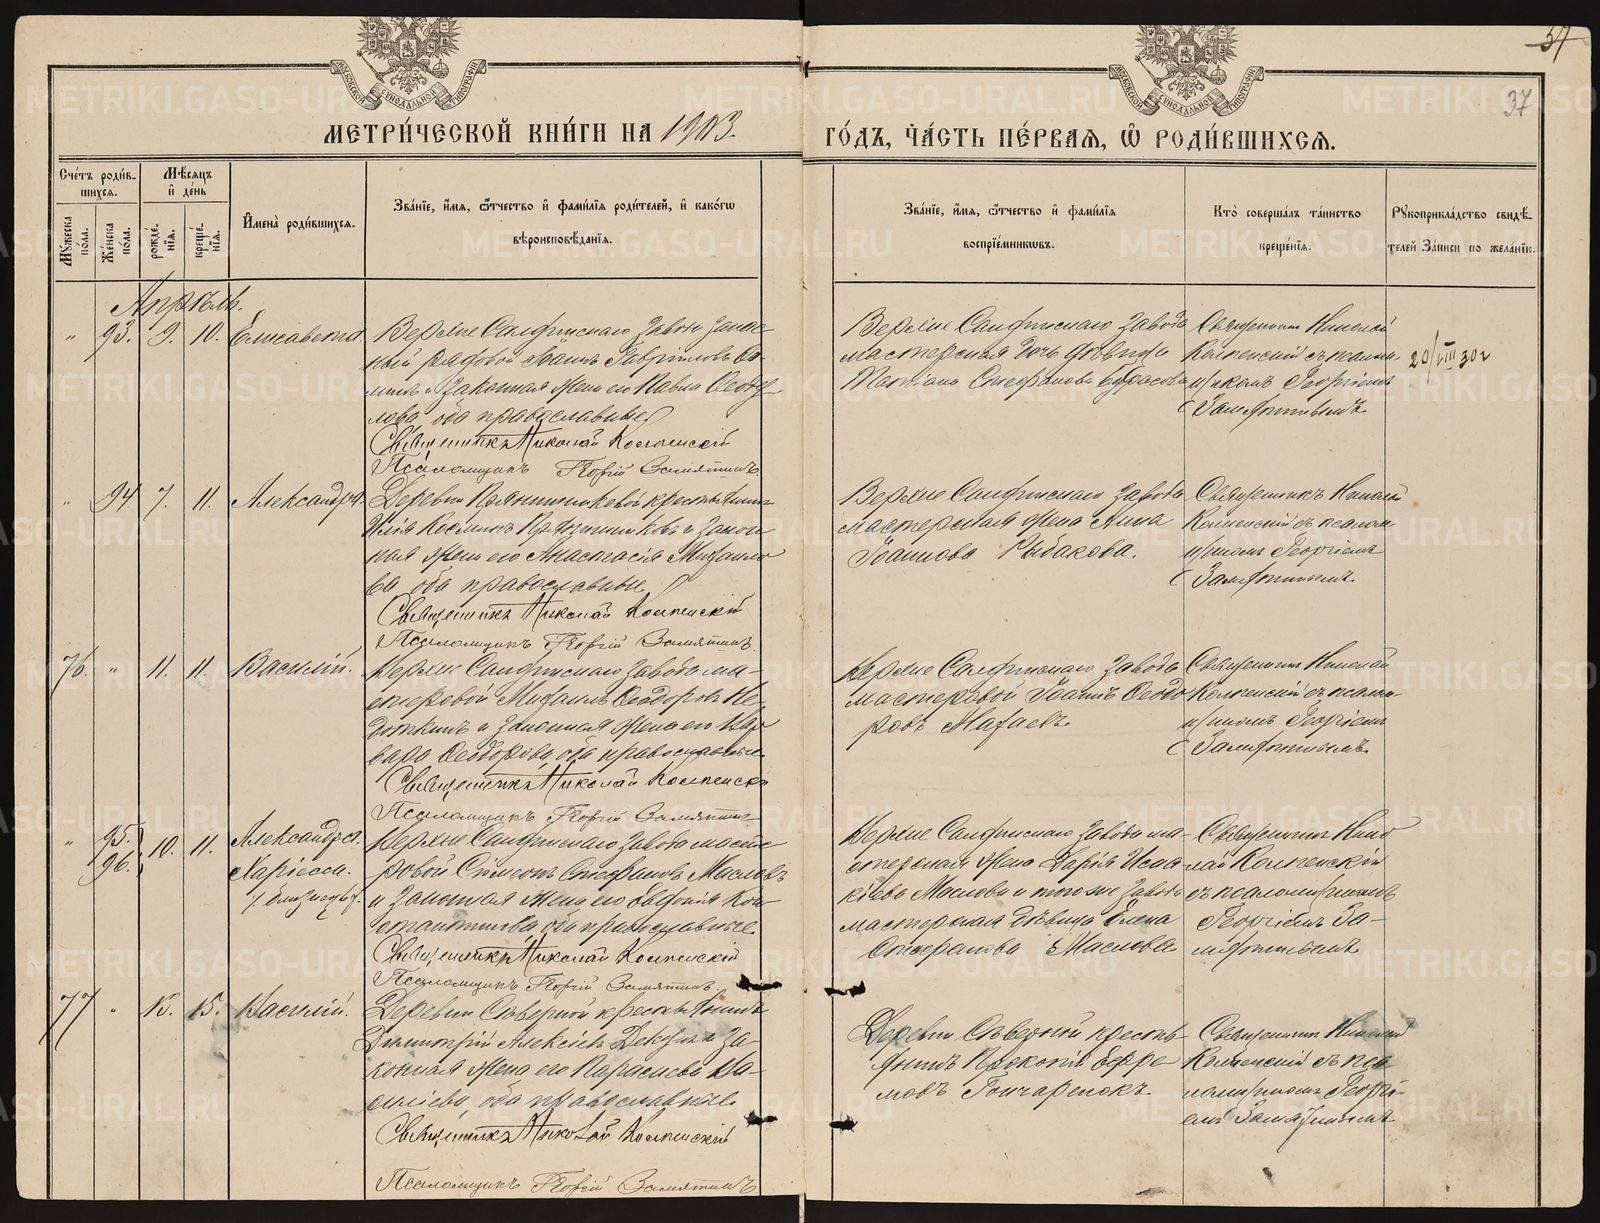 МЕТРИ́ЧЕСКОЙ КНИ́ГИ НА 1903.
ГО́ДЪ, ЧА́СТЬ ПЕ́РВАЯ, Ѽ РОДИ́ВШИХСЯ.
37
37
Сче́тъ роди́в-
шихся.
Мꙋ́жеска по́ла.
Же́нска по́ла.
Мѣ́сяцъ и де́нь
рожде́нїя.
креще́нїя.
И҆мена̀ роди́вшихся.
Зва́нїе, и҆́мя, ѻ҆́тчество и҆ фами́лїя роди́телей, и҆ како́гѡ
вѣроисповѣ́данїя.
Зва́нїе, и҆́мя, ѻ҆́тчество и҆ фами́лїя
воспрїе́мниковъ.
Кто̀ соверша́лъ та́инство
креще́нїя.
Рꙋкоприкла́дство свидѣ́-
телей за́писи по жела́нїю.
Апрѣль.
" 93. 9. 10. Елисавета.
Верхне Салдинскаго завода запас-
ный рядовой Іоаннъ Гавріиловъ
и законная жена его Павла Ѳеоду-
лова, оба православные
Священникъ Николай
Псаломщикъ Георгій Замятинъ
Верхне Салдинскаго завода
мастерская дочь дѣвица
Стефанова
Священникъ Николай
съ псалом-
щикомъ Георгіемъ
Замятинымъ.
20/VIII 30 г
" 94 7. 11. Александра.
Деревни крестьянинъ
Илія Косминъ и закон-
ная жена его Анастасія Михаило-
ва оба православные
Священникъ Николай
Псаломщикъ Георгій Замятинъ
Верхне Салдинскаго завода
мастерская жена Анна
Іоаннова Рыбакова.
Священникъ Николай
съ псалом-
щикомъ Георгіемъ
Замятинымъ.
76. " 11. 11. Василій.
Верхне Салдинскаго завода ма-
стеровой Михаилъ Ѳеодоровъ
и законная жена его Вар-
вара Ѳеодорова, оба православные
Священникъ Николай
Псаломщикъ Георгій Замятинъ
Верхне Салдинскаго завода
мастеровой Іоаннъ Ѳеодо-
ровъ
Священникъ Николай
съ псалом-
щикомъ Георгіемъ
Замятинымъ.
" 95. 96. 10. 11. Александра.
Хариесса.
/близнецы/.
Верхне Салдинскаго завода масте-
ровой Симеонъ Стефановъ Масловъ
и законная жена его Евдокія Кон-
стантинова оба православные
Священникъ Николай
Псаломщикъ Георгій Замятинъ
Верхне Салдинскаго завода ма-
стерская жена Дарія Исаа-
кіева Маслова и того же завода
мастерская дѣвица Елена
Стефанова Маслова
Священникъ Нико-
лай
съ псаломщикомъ
Георгіемъ За-
мятинымъ
77 " 13. 15. Василій.
Деревни Сѣверной крестьянинъ
Димитрій Алексіевъ и за-
конная жена его Параскева Ва-
силіева, оба православные.
Священникъ Николай
Псаломщикъ Георгій Замятинъ
Деревни Сѣверной крестья-
нинъ Прокопій Ефре-
мовъ Гончаренокъ.
Священникъ Николай
съ пса-
ломщикомъ Георгі-
емъ Замятинымъ
METRIKI.GASO-URAL.RU